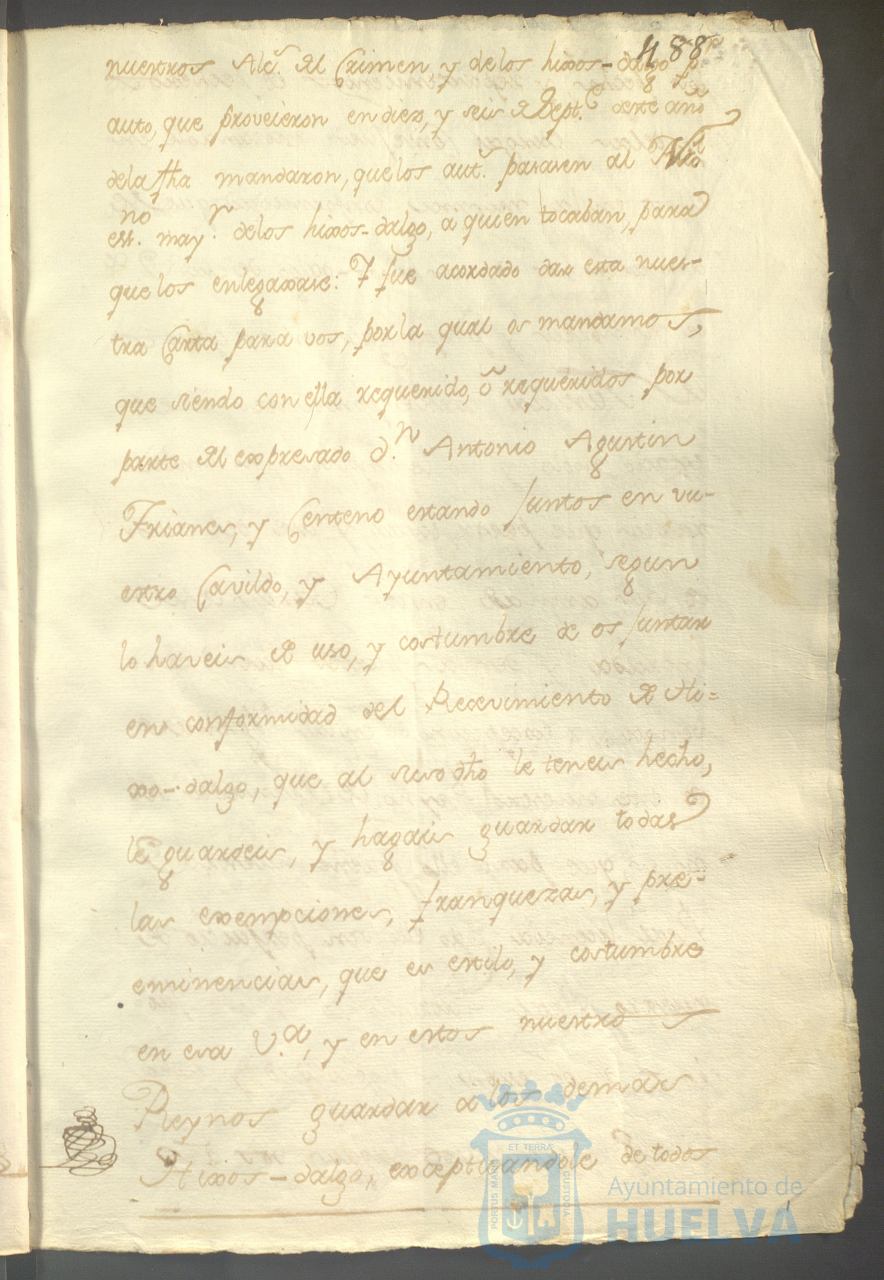 488
nuestros Alc.s del Crimen y de los hixos-dalgo p.r
auto, que proveieron en diez, y seis de Sept.e deste año
de la fha mandaron, que los aut.s pasasen al Nro
ess.no may.r de los hixos-dalgo, a quien tocaban, para
que los enlegaxase: Y fue acordado dar esta nues-
tra Carta para vos, por la qual os mandamos,
que siendo con ella requerido, ò requeridos por
parte del expresado d.n Antonio Agustin
Frianes, y Centeno estando Juntos en vu-
estro Cavildo, y Ayuntamiento, segun
lo haveis de uso, y costumbre de os Juntar
en conformidad del Recevimiento de Hi=
xo-dalgo, que al susodho le teneis hecho,
le guardeis, y hagais guardar todas
las exempciones, franquezas, y pre-
eminencias, que es estilo, y costumbre
en esa V.a, y en estos nuestros
Reynos guardar a los demas
Hixos-dalgo, exceptuandole de todos
PORTUS MARIS
ET TERRÆ
CUSTODIA
Ayuntamiento de
HUELVA